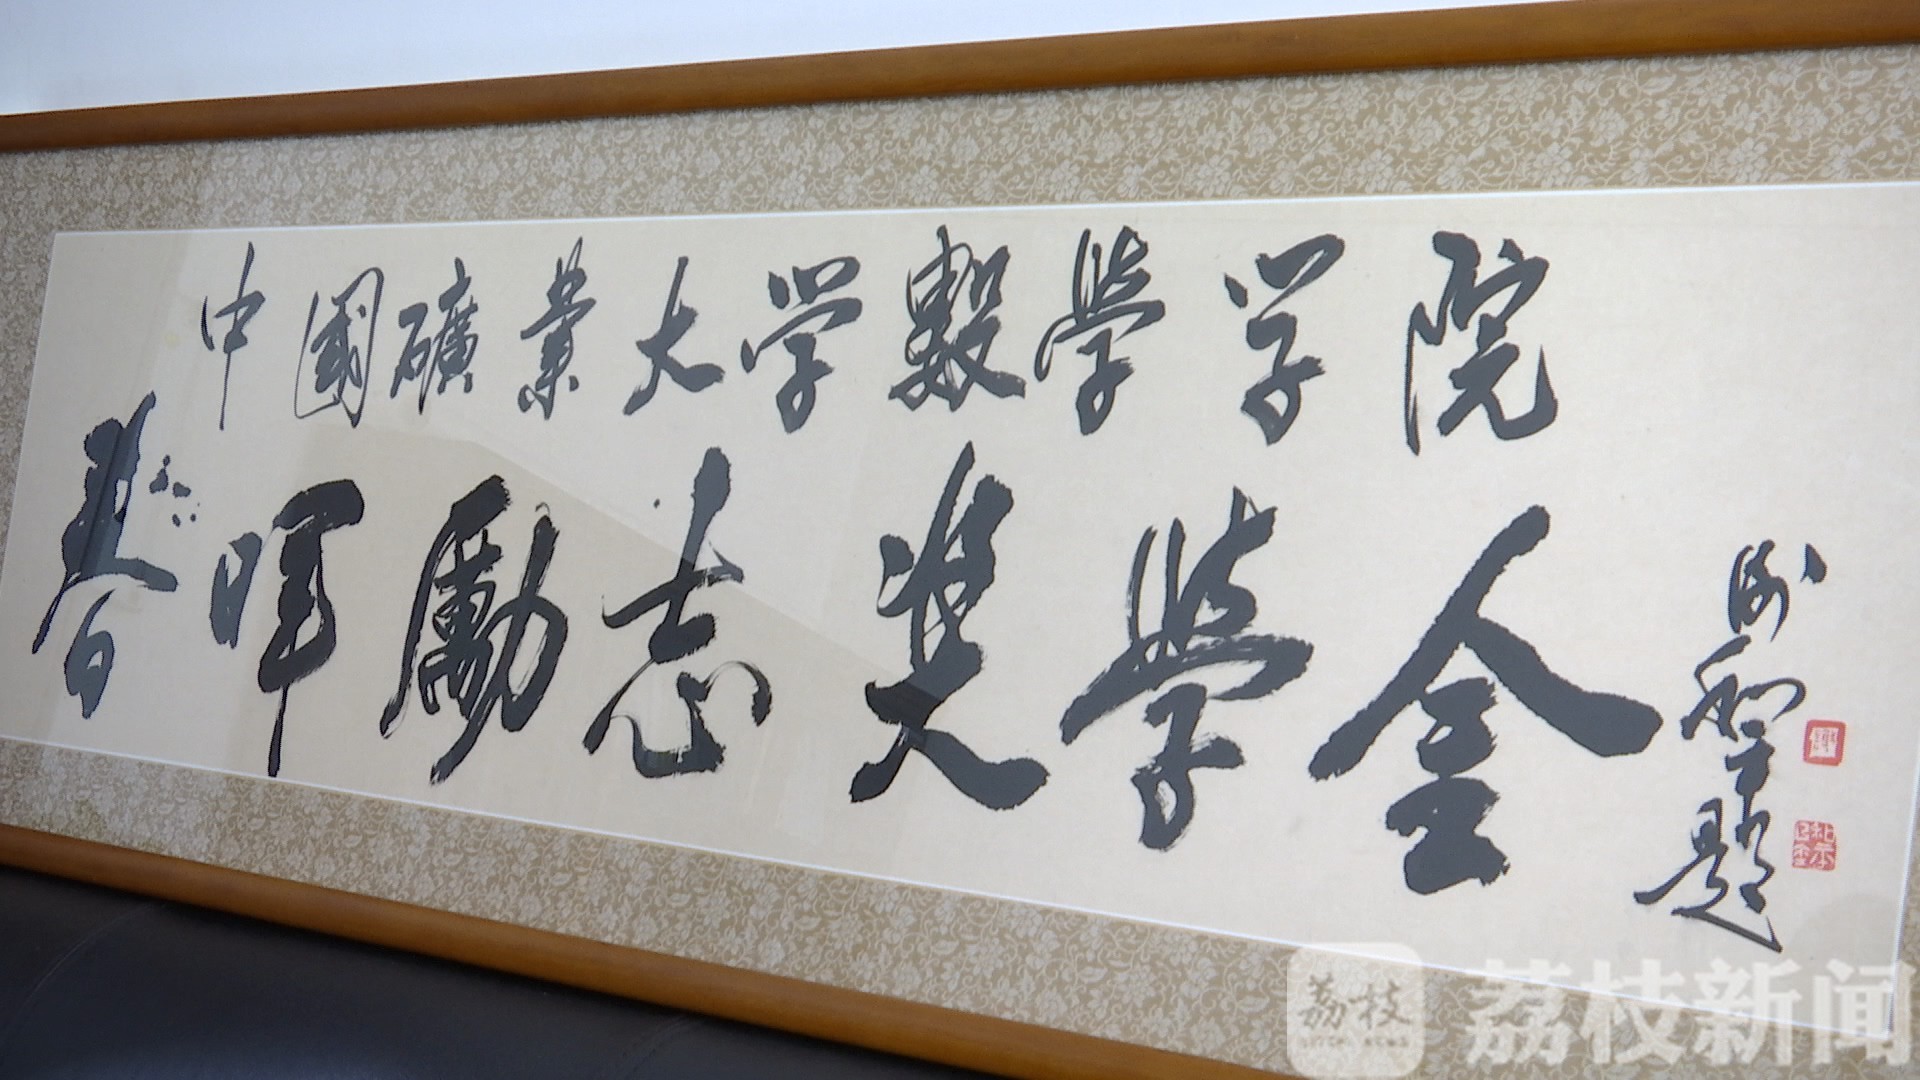 中國礦業大学數學学院
春晖勵志奖學金
题
荔枝
LITCHI NEWS
荔枝新闻